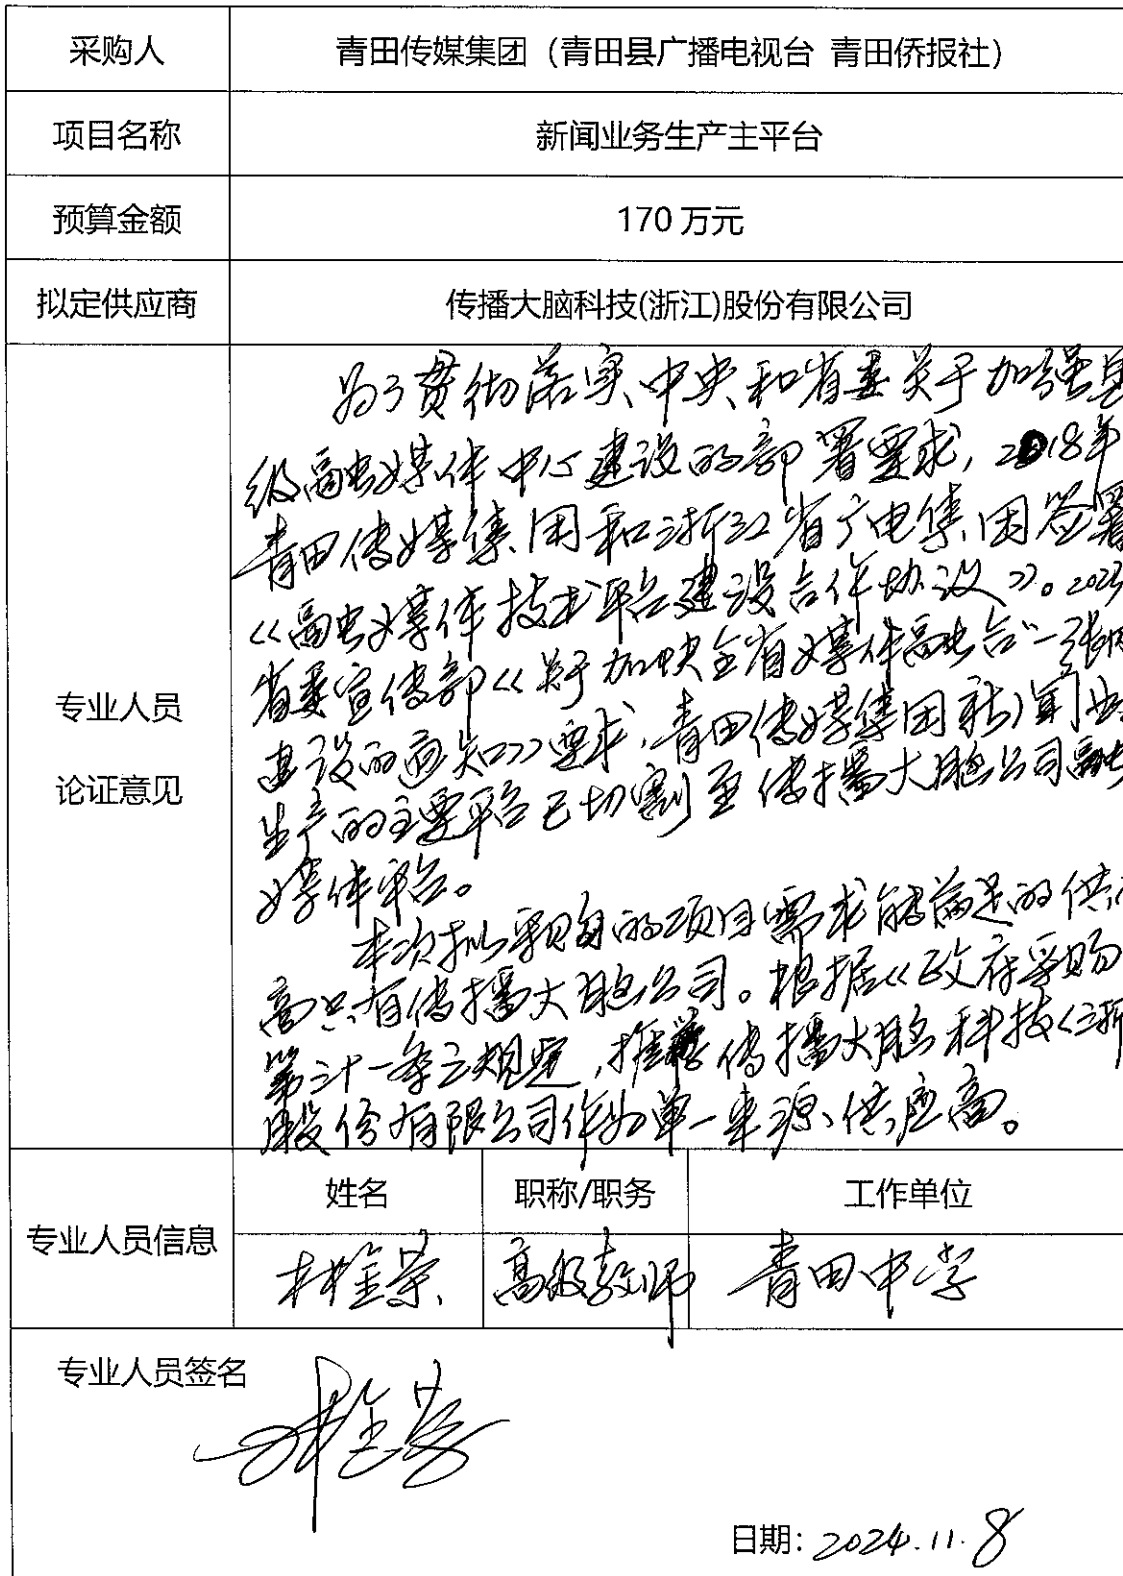 采购人 青田传媒集团（青田县广播电视台 青田侨报社）
项目名称 新闻业务生产主平台
预算金额 170万元
拟定供应商 传播大脑科技(浙江)股份有限公司
专业人员
论证意见
为了贯彻落实中央和省委关于加强县
级融媒体中心建设的部署要求，2018年
青田传媒集团和浙江省广电集团签署
《融媒体技术平台建设合作协议》。2023
省委宣传部《关于加快全省媒体融合“一张网
建设的通知》要求，青田传媒集团新闻业
生产的主要平台已切割至传播大脑公司融
媒体平台。
本次拟采购的项目需求能满足的供应
商只有传播大脑公司。根据《政府采购
第三十一条之规定，推荐传播大脑科技(浙
股份有限公司作为单一来源供应商。
专业人员信息
姓名 职称/职务 工作单位
林金荣 高级教师 青田中学
专业人员签名 林金荣
日期：2024.11.8